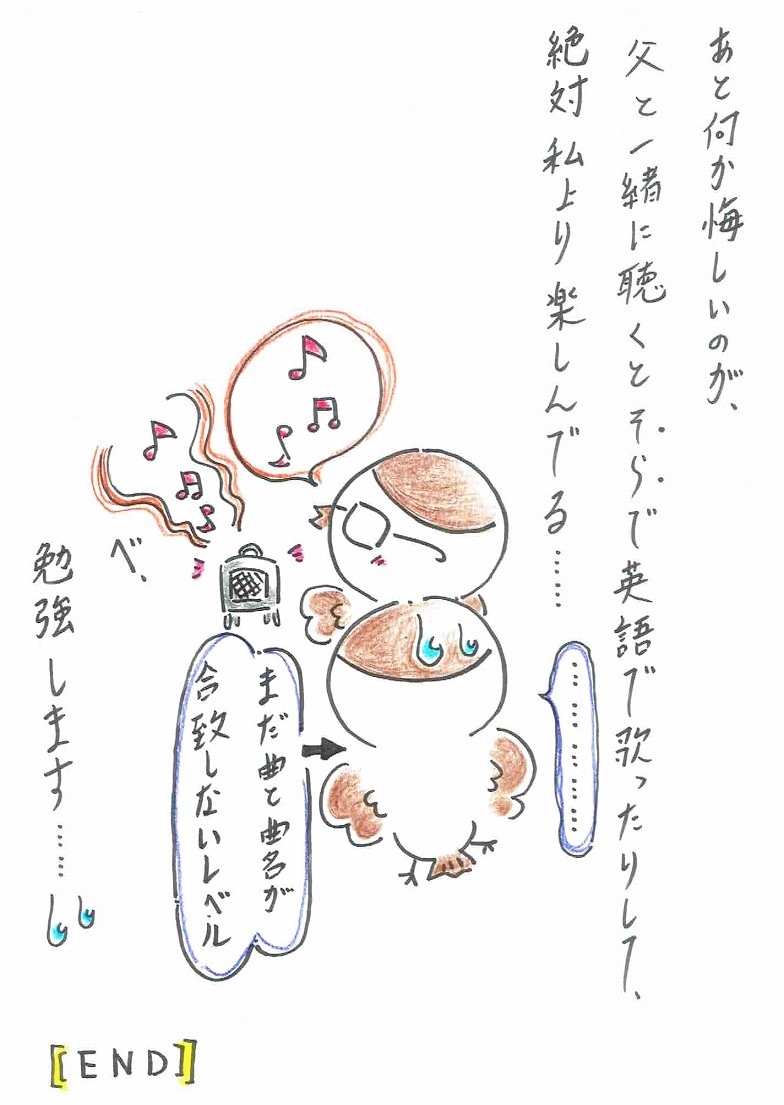 あと何か悔しいのが、
父と一緒に聴くとそらで英語で歌ったりして、
絶対私より楽しんでる……
…………
まだ曲と曲名が
合致しないレベル
べ、
勉強します……
[END]